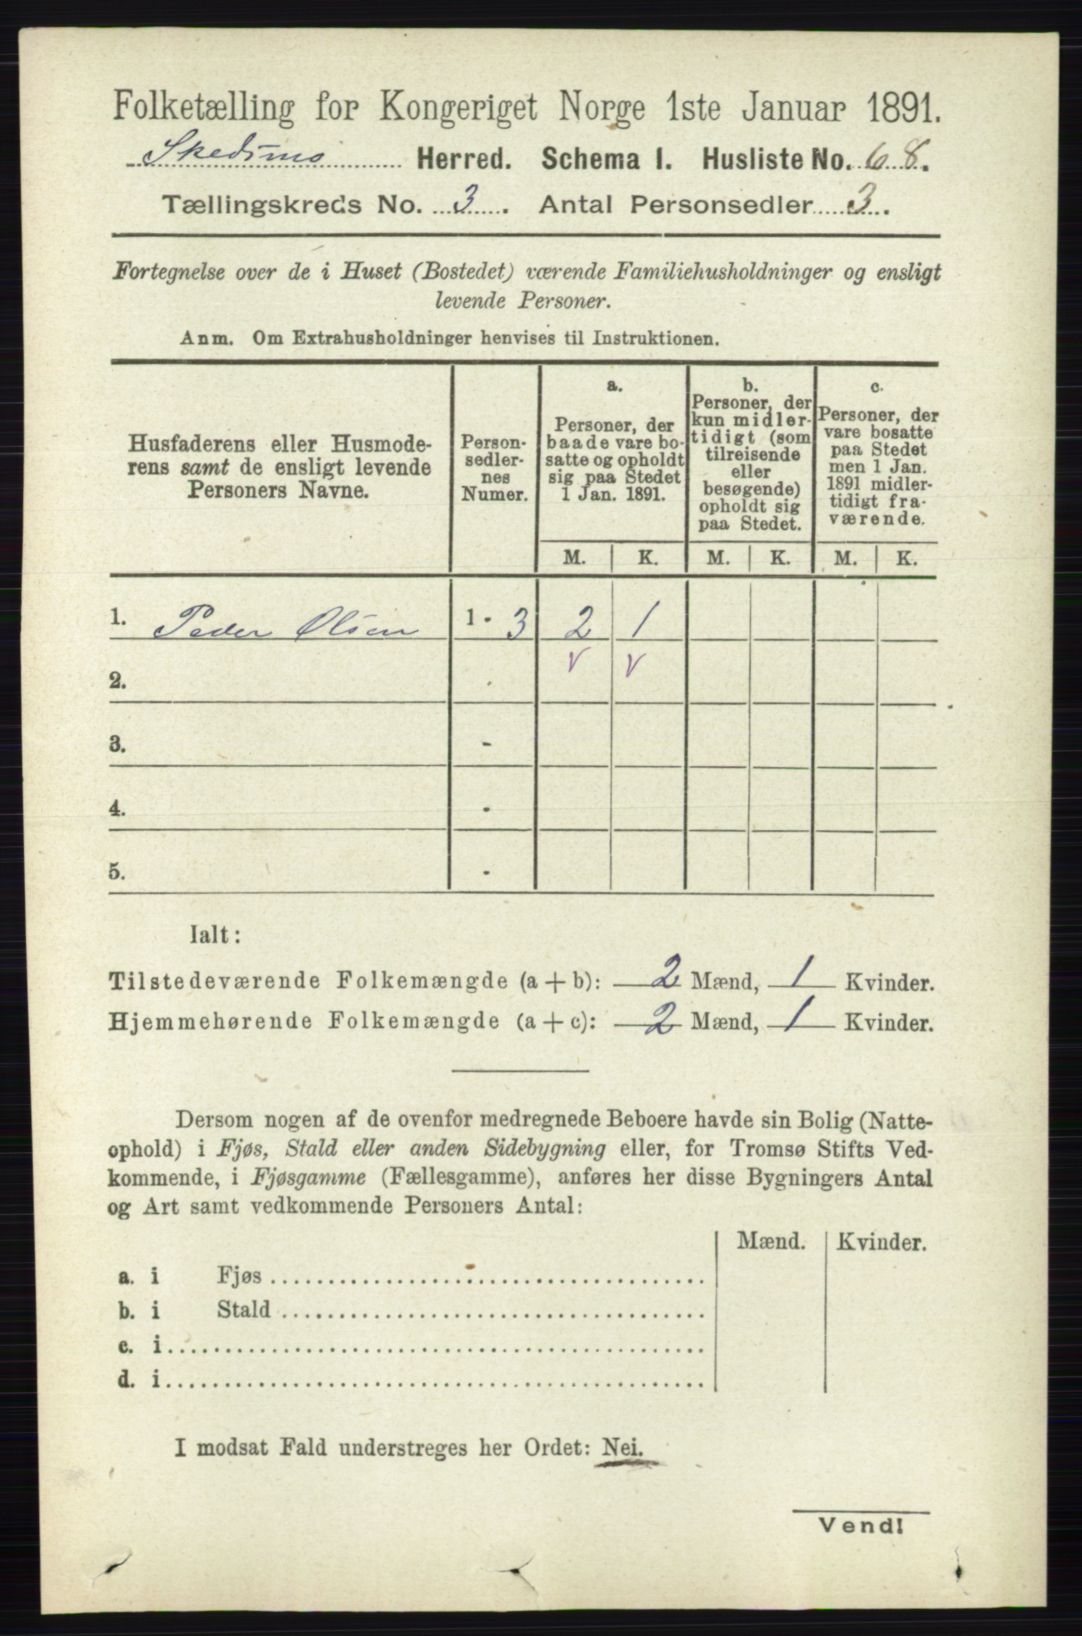 Folketælling for Kongeriget Norge 1ste Januar 1891.
Skedsmo Herred. Schema I. Husliste No. 68.
Tællingskreds No. 3. Antal Personsedler 3.
Fortegnelse over de i Huset (Bostedet) værende Familiehusholdninger og ensligt
levende Personer.
Anm. Om Extrahusholdninger henvises til Instruktionen.
Husfaderens eller Husmode-
rens samt de ensligt levende
Personers Navne.
Person-
sedler-
nes
Numer.
a.
Personer, der
baade vare bo-
satte og opholdt
sig paa Stedet
1 Jan. 1891.
b.
Personer, der
kun midler-
tidigt (som
tilreisende
eller
besøgende)
opholdt sig
paa Stedet.
c.
Personer, der
vare bosatte
paa Stedet
men 1 Jan.
1891 midler-
tidigt fra-
værende.
M. K. M. K. M. K.
1. Peder Olsen 1 - 3 2 1
v v
2.
3. -
4. -
5. -
Ialt:
Tilstedeværende Folkemængde (a + b): 2 Mænd, 1 Kvinder.
Hjemmehørende Folkemængde (a + c): 2 Mænd, 1 Kvinder.
Dersom nogen af de ovenfor medregnede Beboere havde sin Bolig (Natte-
ophold) i Fjøs, Stald eller anden Sidebygning eller, for Tromsø Stifts Ved-
kommende, i Fjøsgamme (Fællesgamme), anføres her disse Bygningers Antal
og Art samt vedkommende Personers Antal:
Mænd. Kvinder.
a. i Fjøs
b. i Stald
c. i
d. i
I modsat Fald understreges her Ordet: Nei.
Vend!